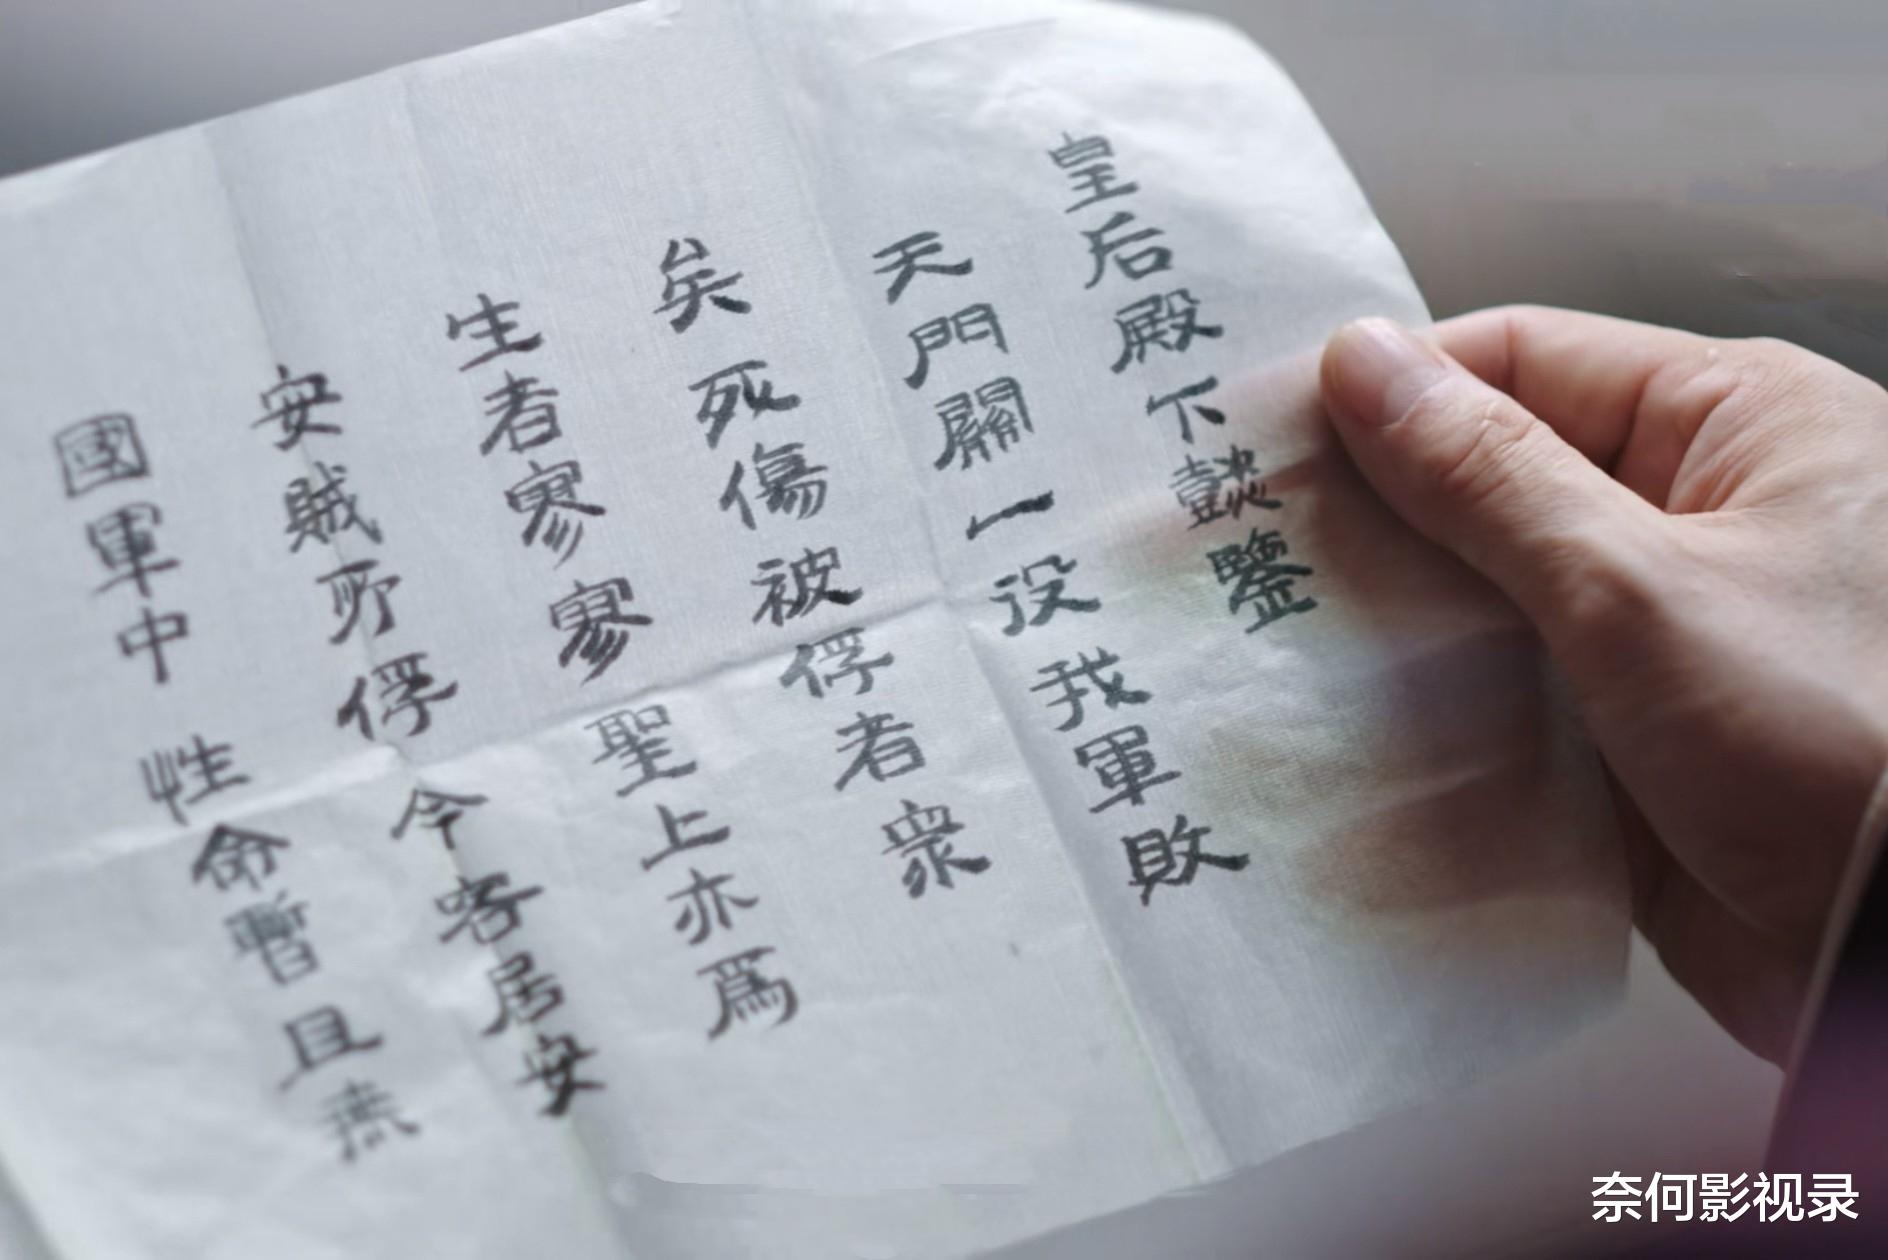 皇后殿下懿鑒
天門關一役我軍敗
矣死傷被俘者衆
生者寥寥聖上亦爲
安賊所俘今客居安
國軍中性命暫且無
奈何影视录